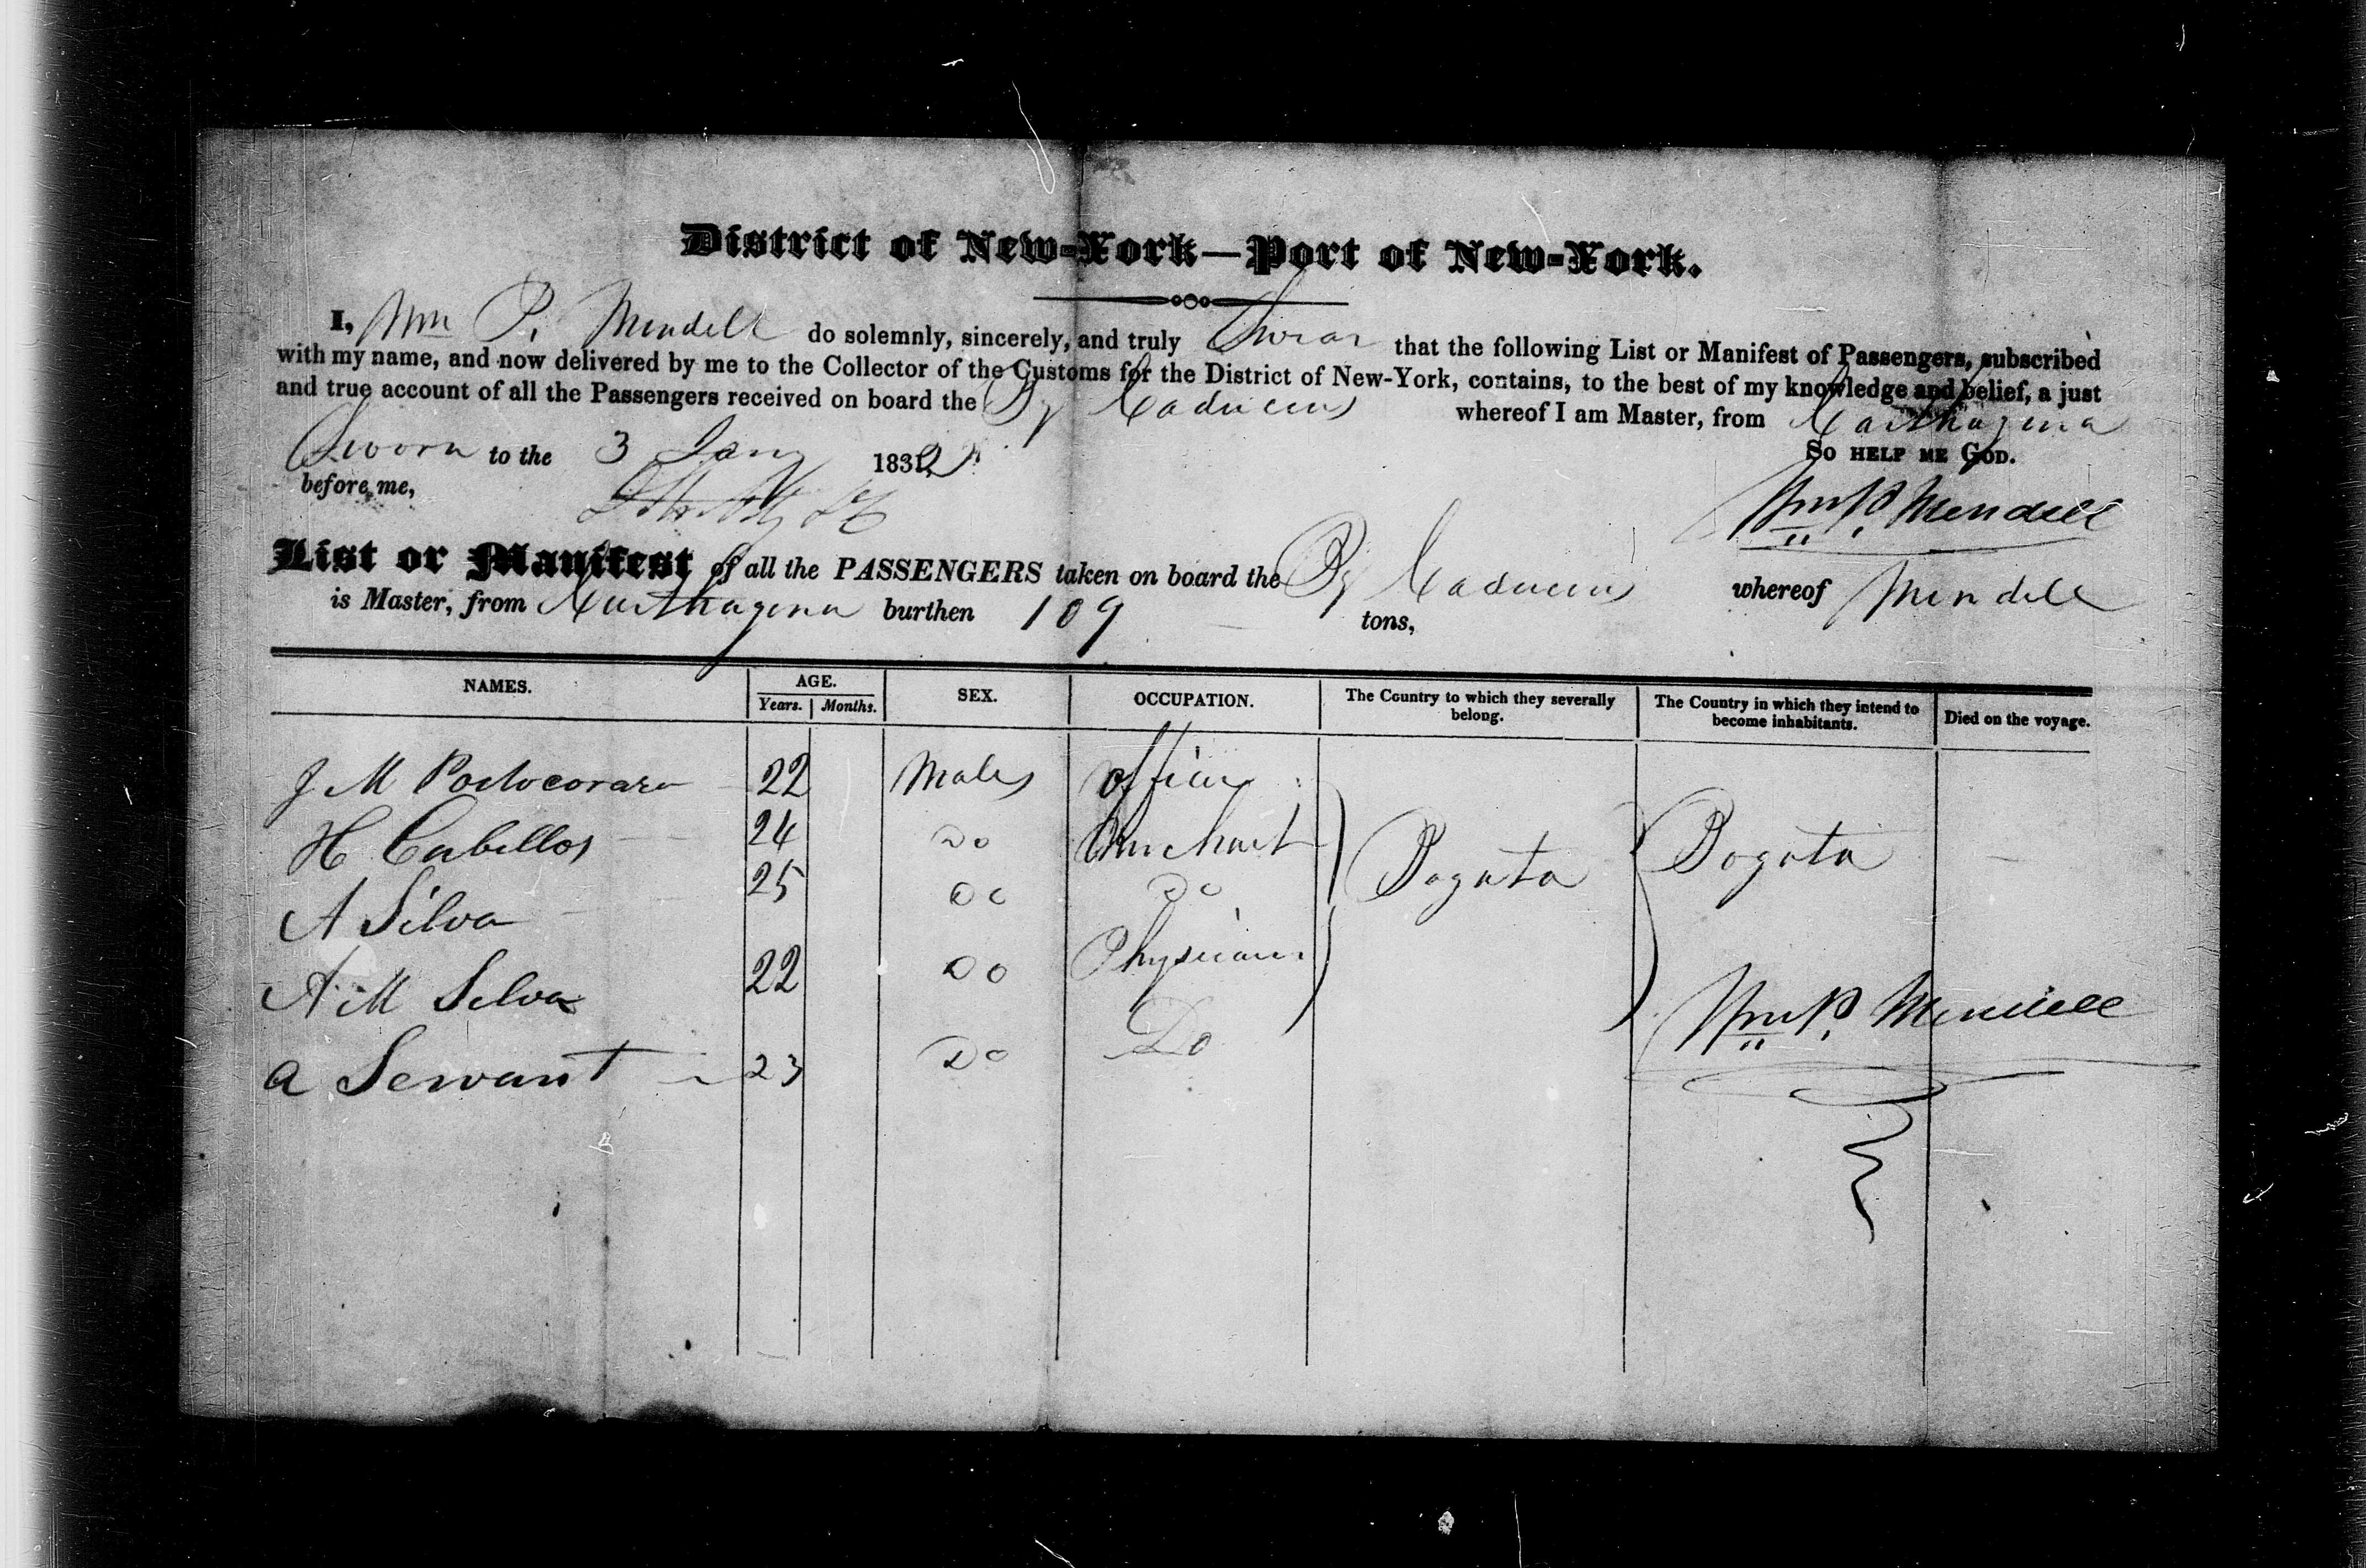 District of New-York—Port of New-York.
I, Wm P. Mendell do solemnly, sincerely, and truly Swear that the following List or Manifest of Passengers, subscribed
with my name, and now delivered by me to the Collector of the Customs for the District of New-York, contains, to the best of my knowledge and belief, a just
and true account of all the Passengers received on board the Bg Caduceus whereof I am Master, from Carthagena
Sworn to the 3 Jany 1832 So help me God.
before me,
Wm P. Mendell
List or Manifest of all the PASSENGERS taken on board the Bg Caduceus whereof Mendell
is Master, from Carthagena burthen 109 tons,
NAMES. AGE. SEX. OCCUPATION. The Country to which they severally belong. The Country in which they intend to become inhabitants. Died on the voyage.
Years. Months.
J M Portocoraro 22 Males officer
H Cabellos 24 Do Merchant Bogota Bogota
A Silva 25 Do Do
A M Silva 22 Do Physician
a Servant 23 Do Do
Wm P. Mendell